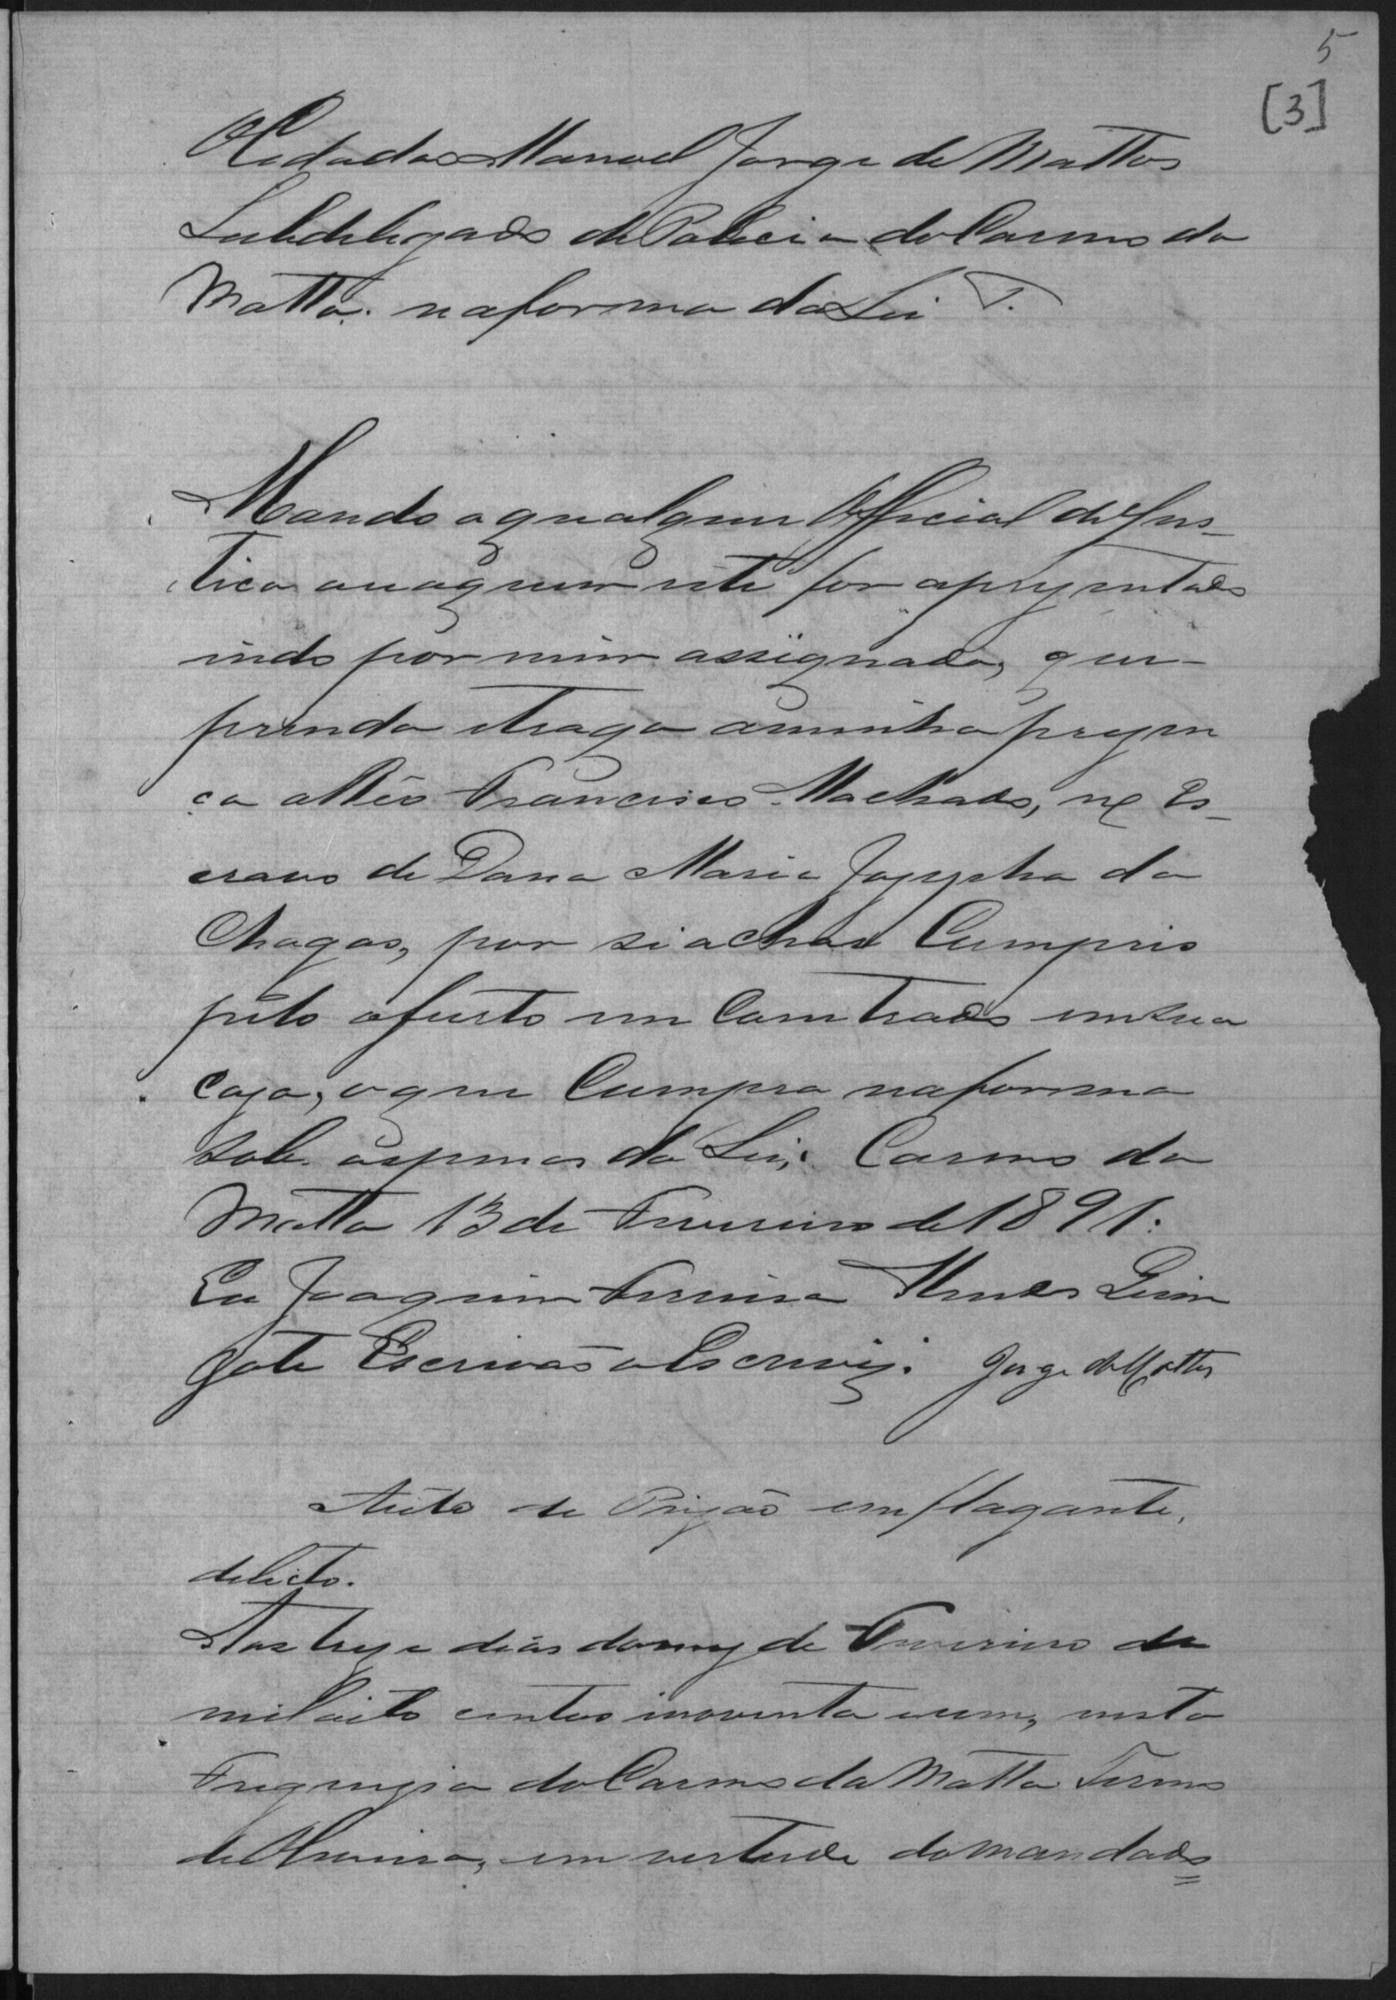 5
[3]
Cidadão Manoel Jorge de Mattos
Subdelegado de Policia do Carmo da
Matta. na forma da Lei
Mando a qualquer Official de Jus-
tica ou aquem este for aprezentado
indo por mim assignado, que
prenda etraga aminha prezen
ça a Réo Francisco Machado, ex Es-
cravo de Dona Maria Jozepha da
Chagas, por si achar Cumpris
pêto ofurto em Comtrado emsua
Caza, oque Cumpra naforma
sob. aspenas da Lei. Carmo da
Matta 13 de Fevereiro de 1891.
Eu Joaquim Ferreira Mendes Lum
gote Escrivão o Escrevÿ. Jorge de Mattos
Auto de Prizão em flagante,
delicto.
Aos treze dias domez de Fevereiro de
mil oito centos inoventa eum, nesta
Freguezia do Carmo da Matta Termo
de Oliveira, em vertude domandado